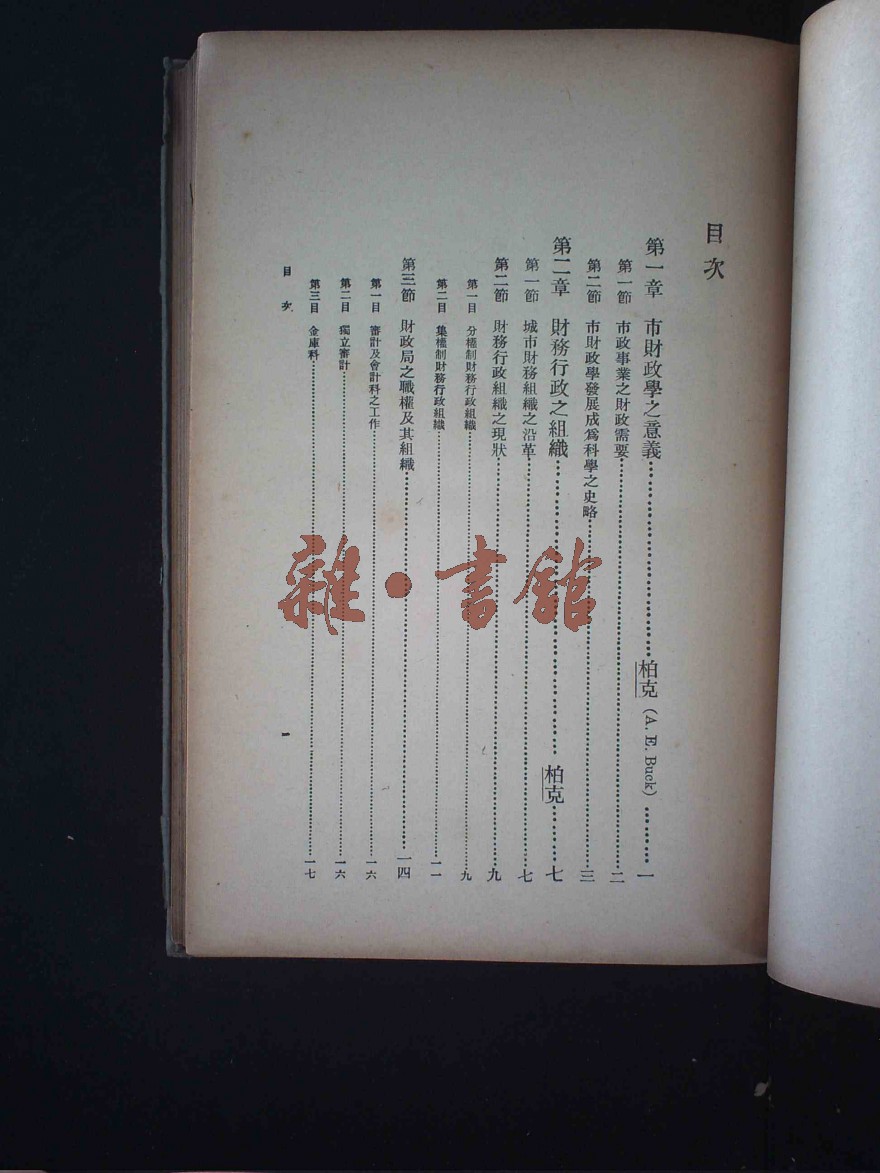 目次
第一章 市財政學之意義……………………柏克（A. E. Buck）………一
第一節 市政事業之財政需要……………………二
第二節 市財政學發展成爲科學之史略……………………三
第二章 財務行政之組織……………………柏克………七
第一節 城市財務組織之沿革……………………七
第二節 財務行政組織之現狀……………………九
第一目 分權制財務行政組織……………………九
第二目 集權制財務行政組織……………………一一
第三節 財政局之職權及其組織……………………一四
第一目 審計及會計科之工作……………………一六
第二目 獨立審計……………………一六
第三目 金庫科……………………一七
目次 一
雜·書館